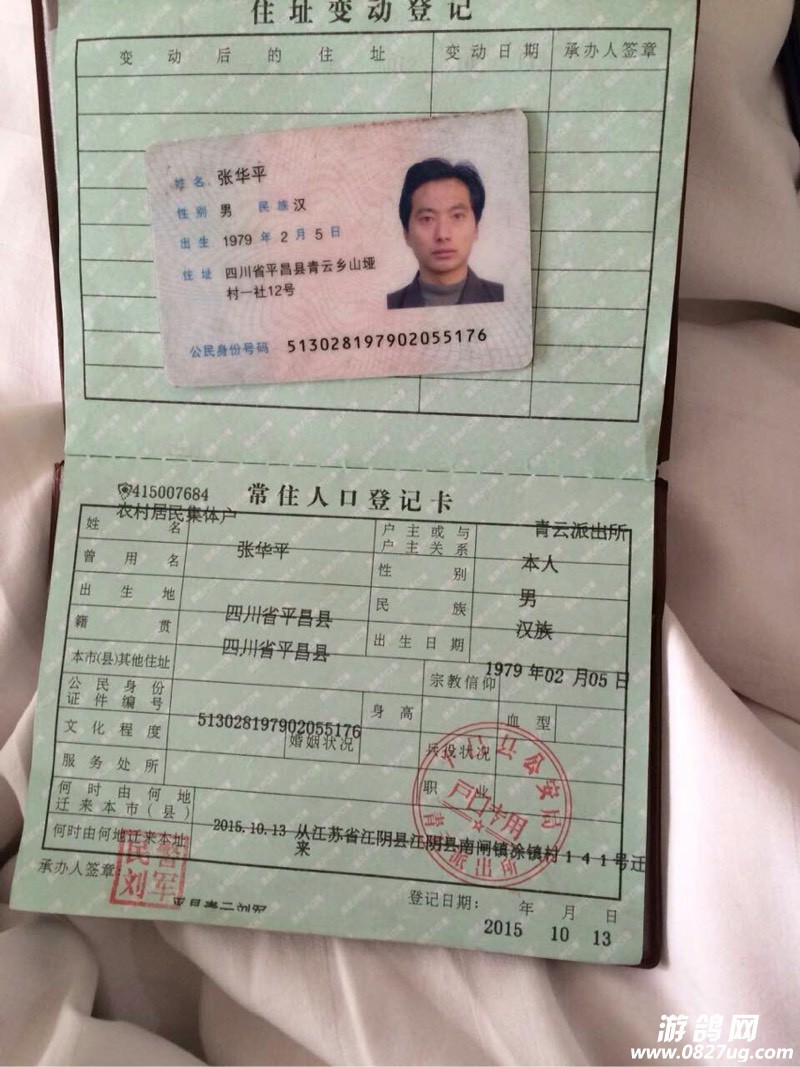 住址变动登记
变动后的住址 变动日期 承办人签章
姓名 张华平
性别 男 民族 汉
出生 1979 年 2 月 5 日
住址 四川省平昌县青云乡山垭
村一社12号
公民身份号码 513028197902055176
415007684 常住人口登记卡
农村居民集体户 青云派出所
姓名 张华平 户主或与户主关系 本人
曾用名 性别 男
出生地 四川省平昌县 民族 汉族
籍贯 四川省平昌县 出生日期 1979 年02 月05 日
本市(县)其他住址 宗教信仰
公民身份证件编号 513028197902055176 身高 血型
文化程度 婚姻状况 兵役状况
服务处所 职业
何时由何地迁来本市(县)
何时由何地迁来本址 2015.10.13 从江苏省江阴县江阴县南闸镇涂镇村141号迁来
县公安局
户口专用
派出所
承办人签章:
民警
刘军
登记日期: 年 月 日
2015 10 13
游鸽网
www.0827ug.com